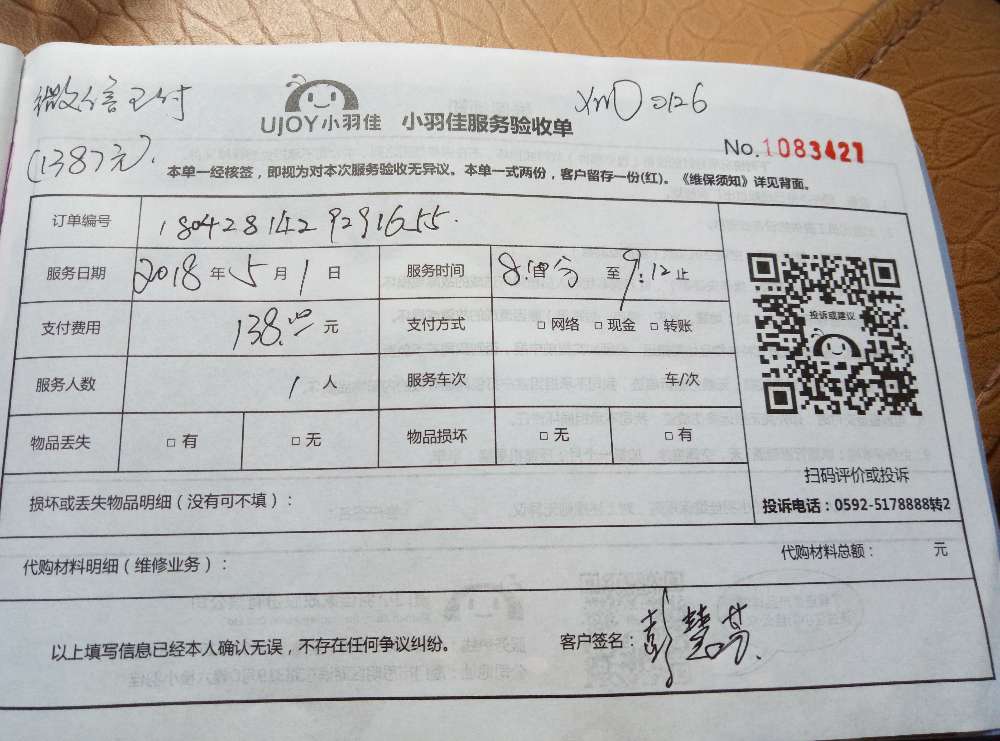 微信已付
(138元).
XMD0126
UJOY小羽佳 小羽佳服务验收单
No.1083427
本单一经核签，即视为对本次服务验收无异议。本单一式两份，客户留存一份(红)。《维保须知》详见背面。
订单编号 1804281429291655.
服务日期 2018年5月1日 服务时间 时 分 至9:12止
支付费用 138.00元 支付方式 □网络 □现金 □转账
投诉或建议
服务人数 1人 服务车次 车/次
物品丢失 □有 □无 物品损坏 □无 □有
扫码评价或投诉
投诉电话：0592-5178888转2
损坏或丢失物品明细（没有可不填）：
代购材料明细（维修业务）： 代购材料总额： 元
以上填写信息已经本人确认无误，不存在任何争议纠纷。 客户签名：彭楚芬